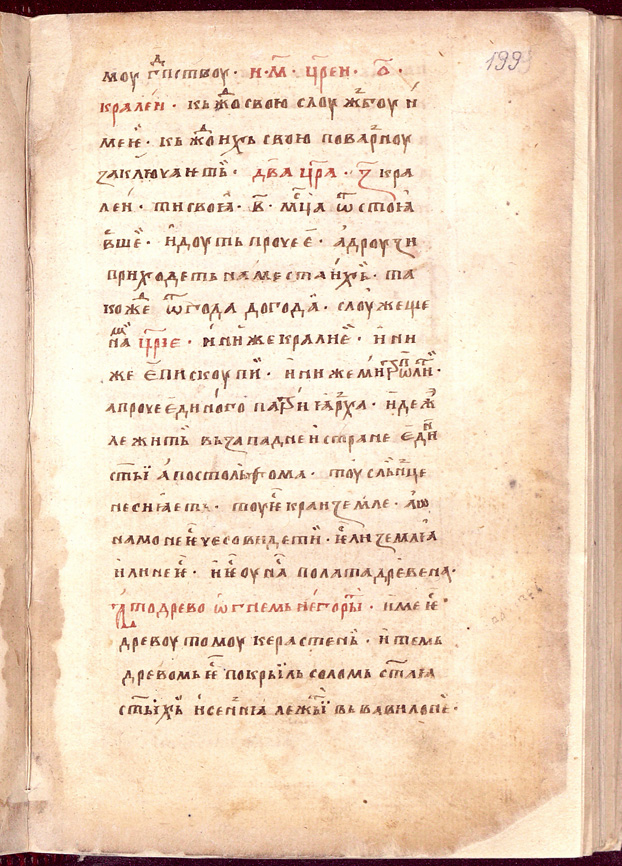 1993
моу гⷭ҇пⷣствоу · н҃ · м҃ · цр҃ен · ѻ҃ ·
крален · кьжⷣо свою слоужбоу и
мее · кьжⷣо ихь свою поварноу
заключають · два цр҃а · з҃ кра
леи · ти свои · в҃ · мцⷭ҇а ѿстоꙗ
вше · идоуть проче е · а дроузи
приходеть на место ихь · та
кожⷣе ѿ года до года · слоужеще
на цр҃ӏе · ини же кралие · и ни
же епискоупи · и ни же
а проче единого патриꙗрха · иде ж
лежить вь западнеи стране един
ст҃ыи апостоль ѳома · тоу сльнце
не сиꙗеть · тоу ⷭ҇е краи земле · а ѡ
намо не чесо видети · ли землꙗ
или не · и оу на полата древена ·
Ато древо ѡгнемь не горыⷮ · име
древоу томоу керастень · и темь
древомь покрыль соломь ст҃аꙗ
ст҃ыхь и сениꙗ лежыⷮ вь вавилоне ·